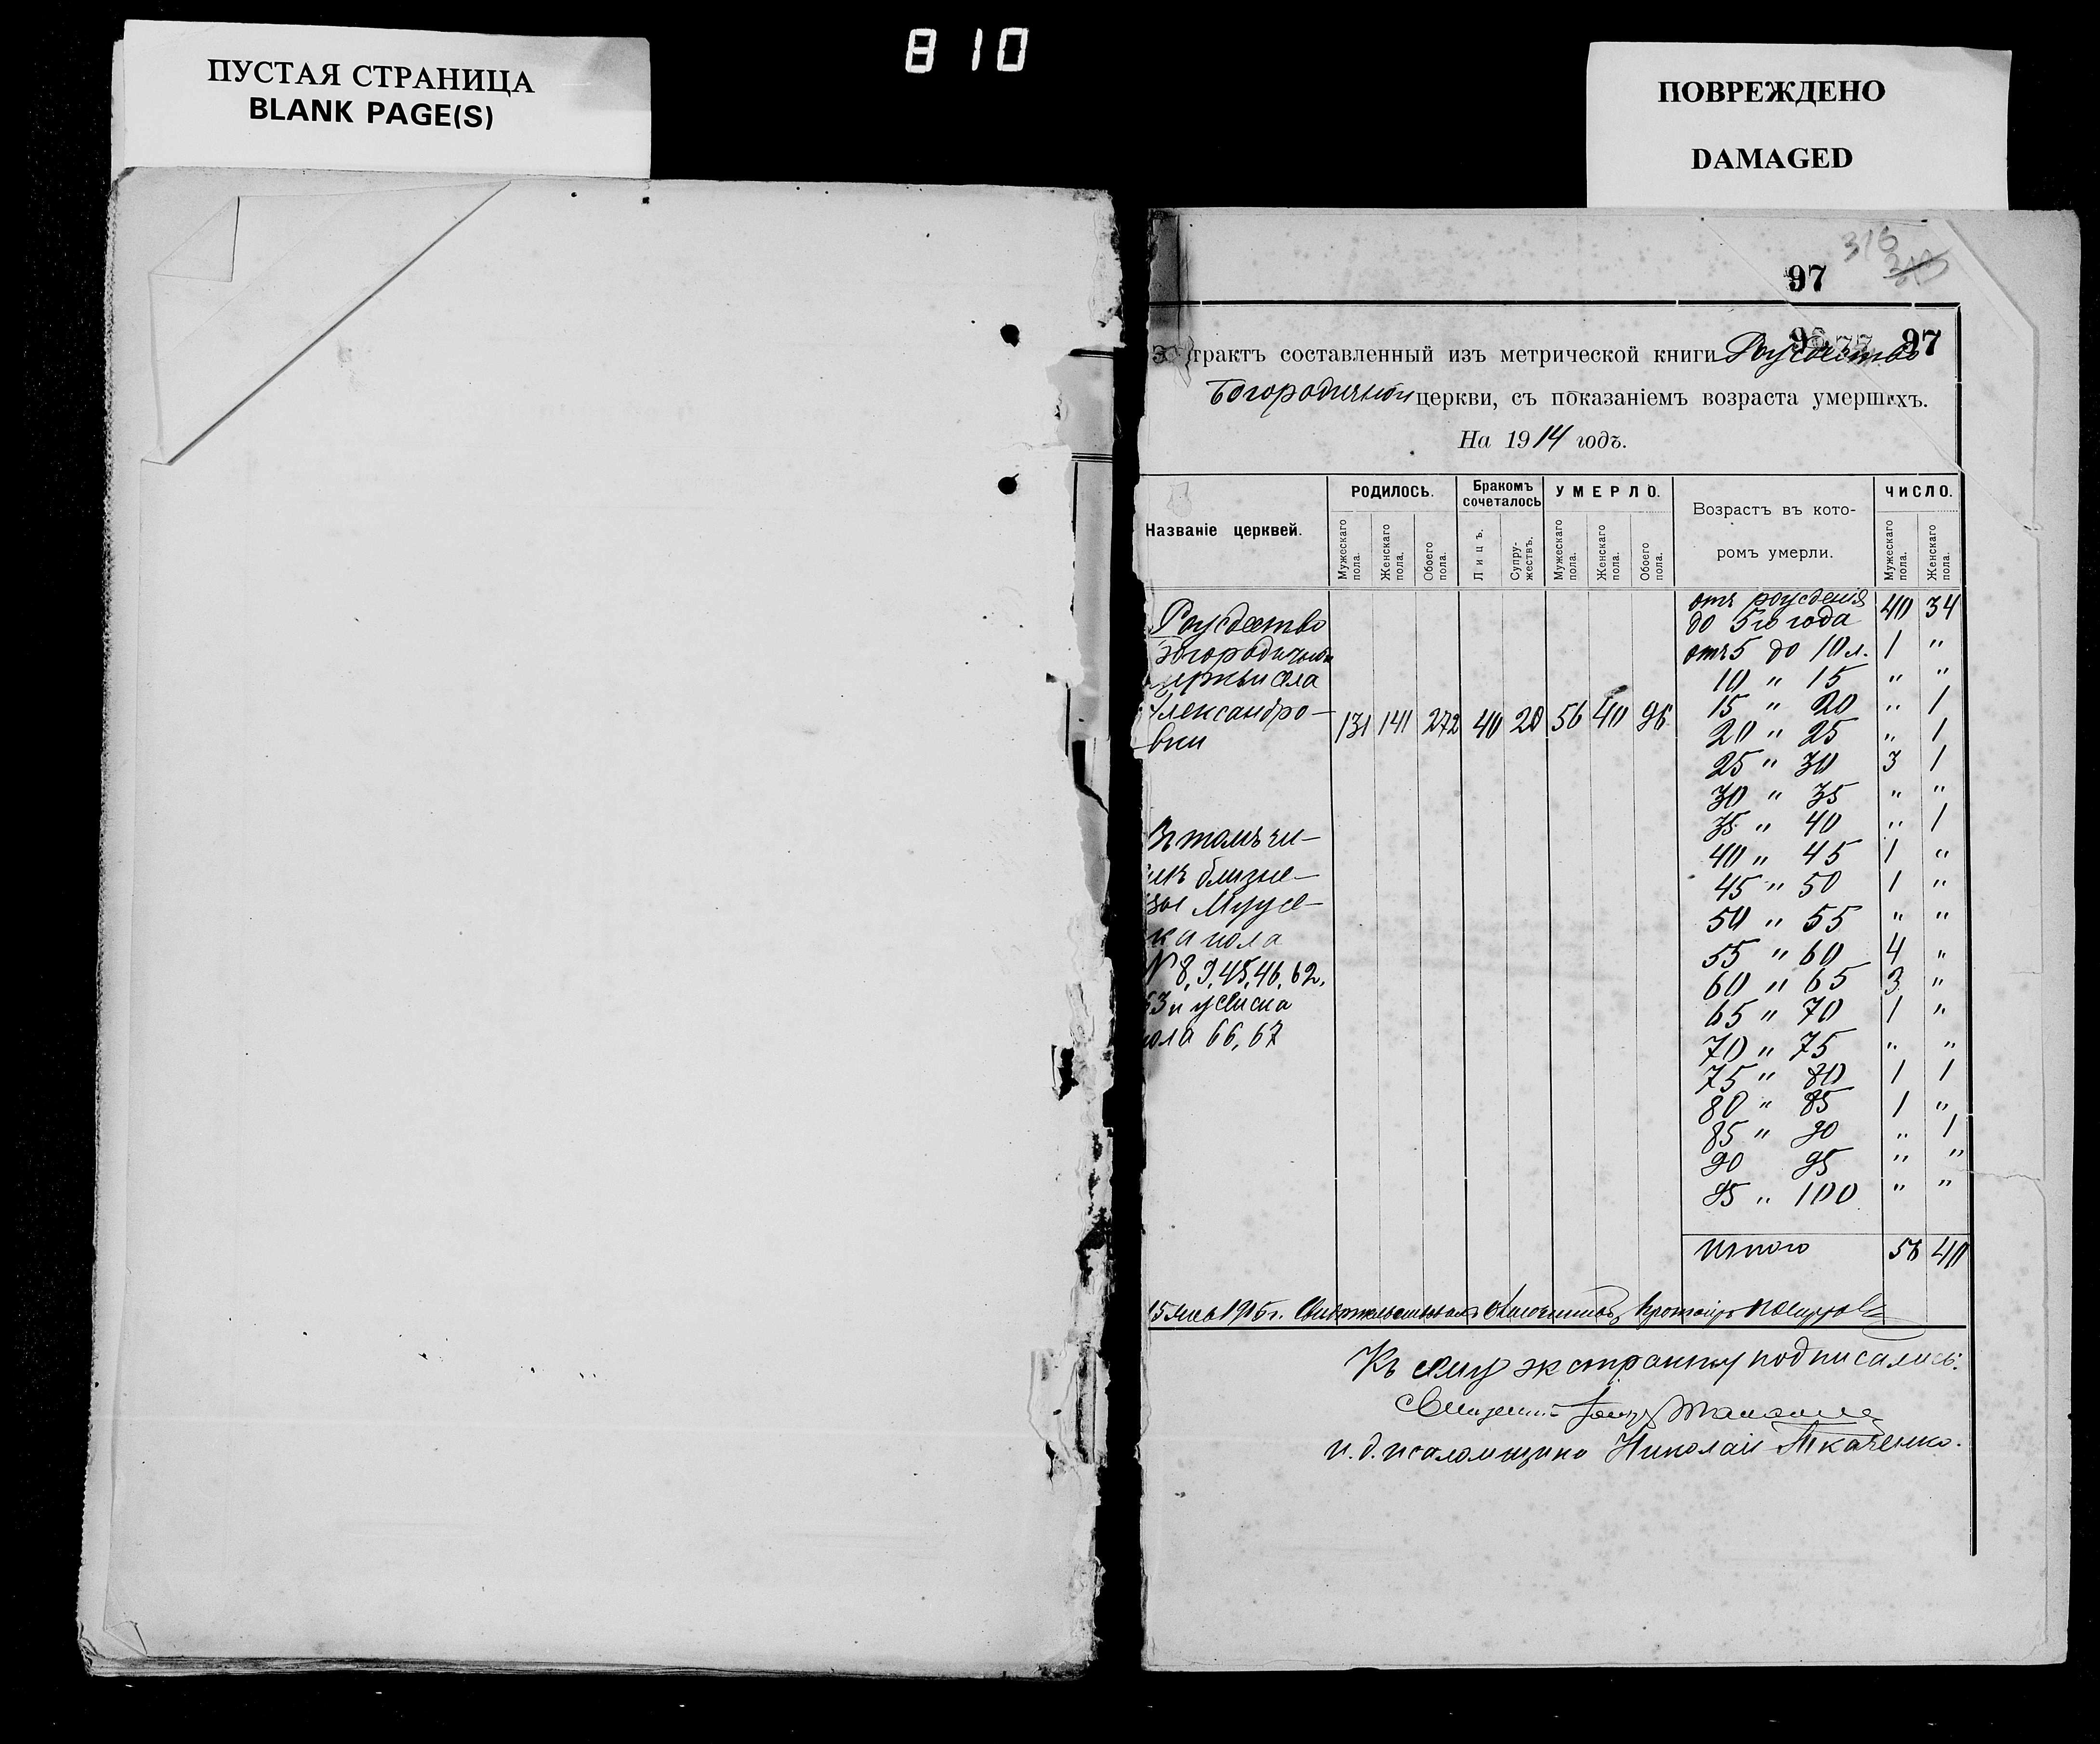 ПУСТАЯ СТРАНИЦА
BLANK PAGE(S)
810
ПОВРЕЖДЕНО
DAMAGED
316
97
97
трактъ составленный изъ метрической книги Рождество
Богородичной церкви, съ показаніемъ возраста умершихъ.
На 1914 годъ.
Названіе церквей.
РОДИЛОСЬ.
Мужескаго пола.
Женскаго пола.
Обоего пола.
Бракомъ сочеталось
Лицъ.
Супружествъ.
УМЕРЛО.
Мужескаго пола.
Женскаго пола.
Обоего пола.
Возрастъ въ кото-
ромъ умерли.
ЧИСЛО.
Мужескаго пола.
Женскаго пола.
Рождество
Богородичной
церкви села
Александро-
вки
131 141 272 40 20 56 40 96
Въ томъ чи-
слѣ близне-
цы Муже-
ска пола
№ 8, 9, 45, 46, 62,
63 и женска
пола 66, 67
отъ рожденія
до 5го года 40 34
отъ 5 до 10 л. 1 "
10 " 15 " "
15 " 20 " 1
20 " 25 " 1
25 " 30 3 1
30 " 35 " "
35 " 40 " 1
40 " 45 1 "
45 " 50 1 "
50 " 55 " "
55 " 60 4 "
60 " 65 3 "
65 " 70 1 "
70 " 75 " "
75 " 80 1 1
80 " 85 1 "
85 " 90 " 1
90 95 " "
95 " 100 " "
Итого 56 40
15 1915 г. Свидѣтельствовалъ
Къ сему экстракту подписались:
Священникъ
и. д. псаломщика Николай Ткаченко.